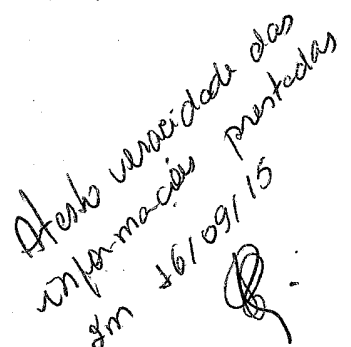 Atesto veracidade das
informações prestadas
Em 16/09/15